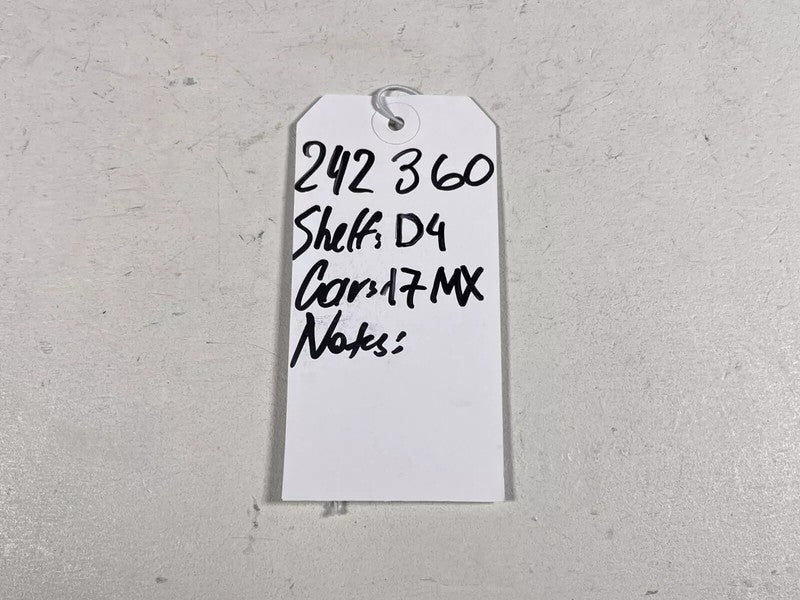 242 360
Shelf: D4
Car: 17 MX
Notes: